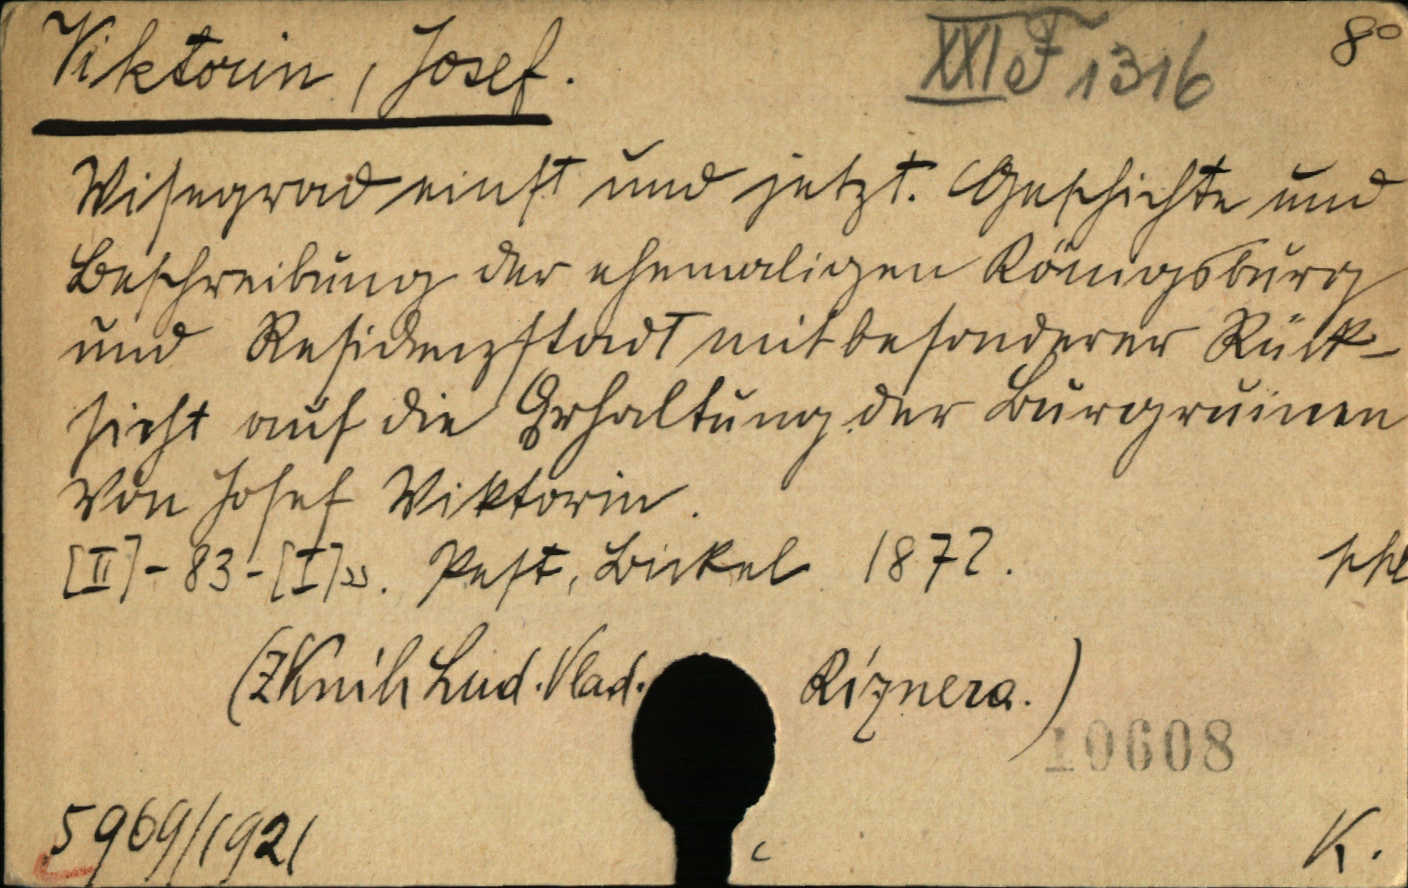 Viktorin, Josef.
XXI F 1316
8°
Visegrad einst und jetzt. Geschichte und
Beschreibung der ehemaligen Königsburg
und Residenzstadt mit besonderer Rück-
sicht auf die Erhaltung der Burgruinen
Von Josef Viktorin.
[II]-83-[I]
Pest, Bickel 1872.
(Z Knih Lud. Vlad. Riznera.)
10608
5969/1921
K.